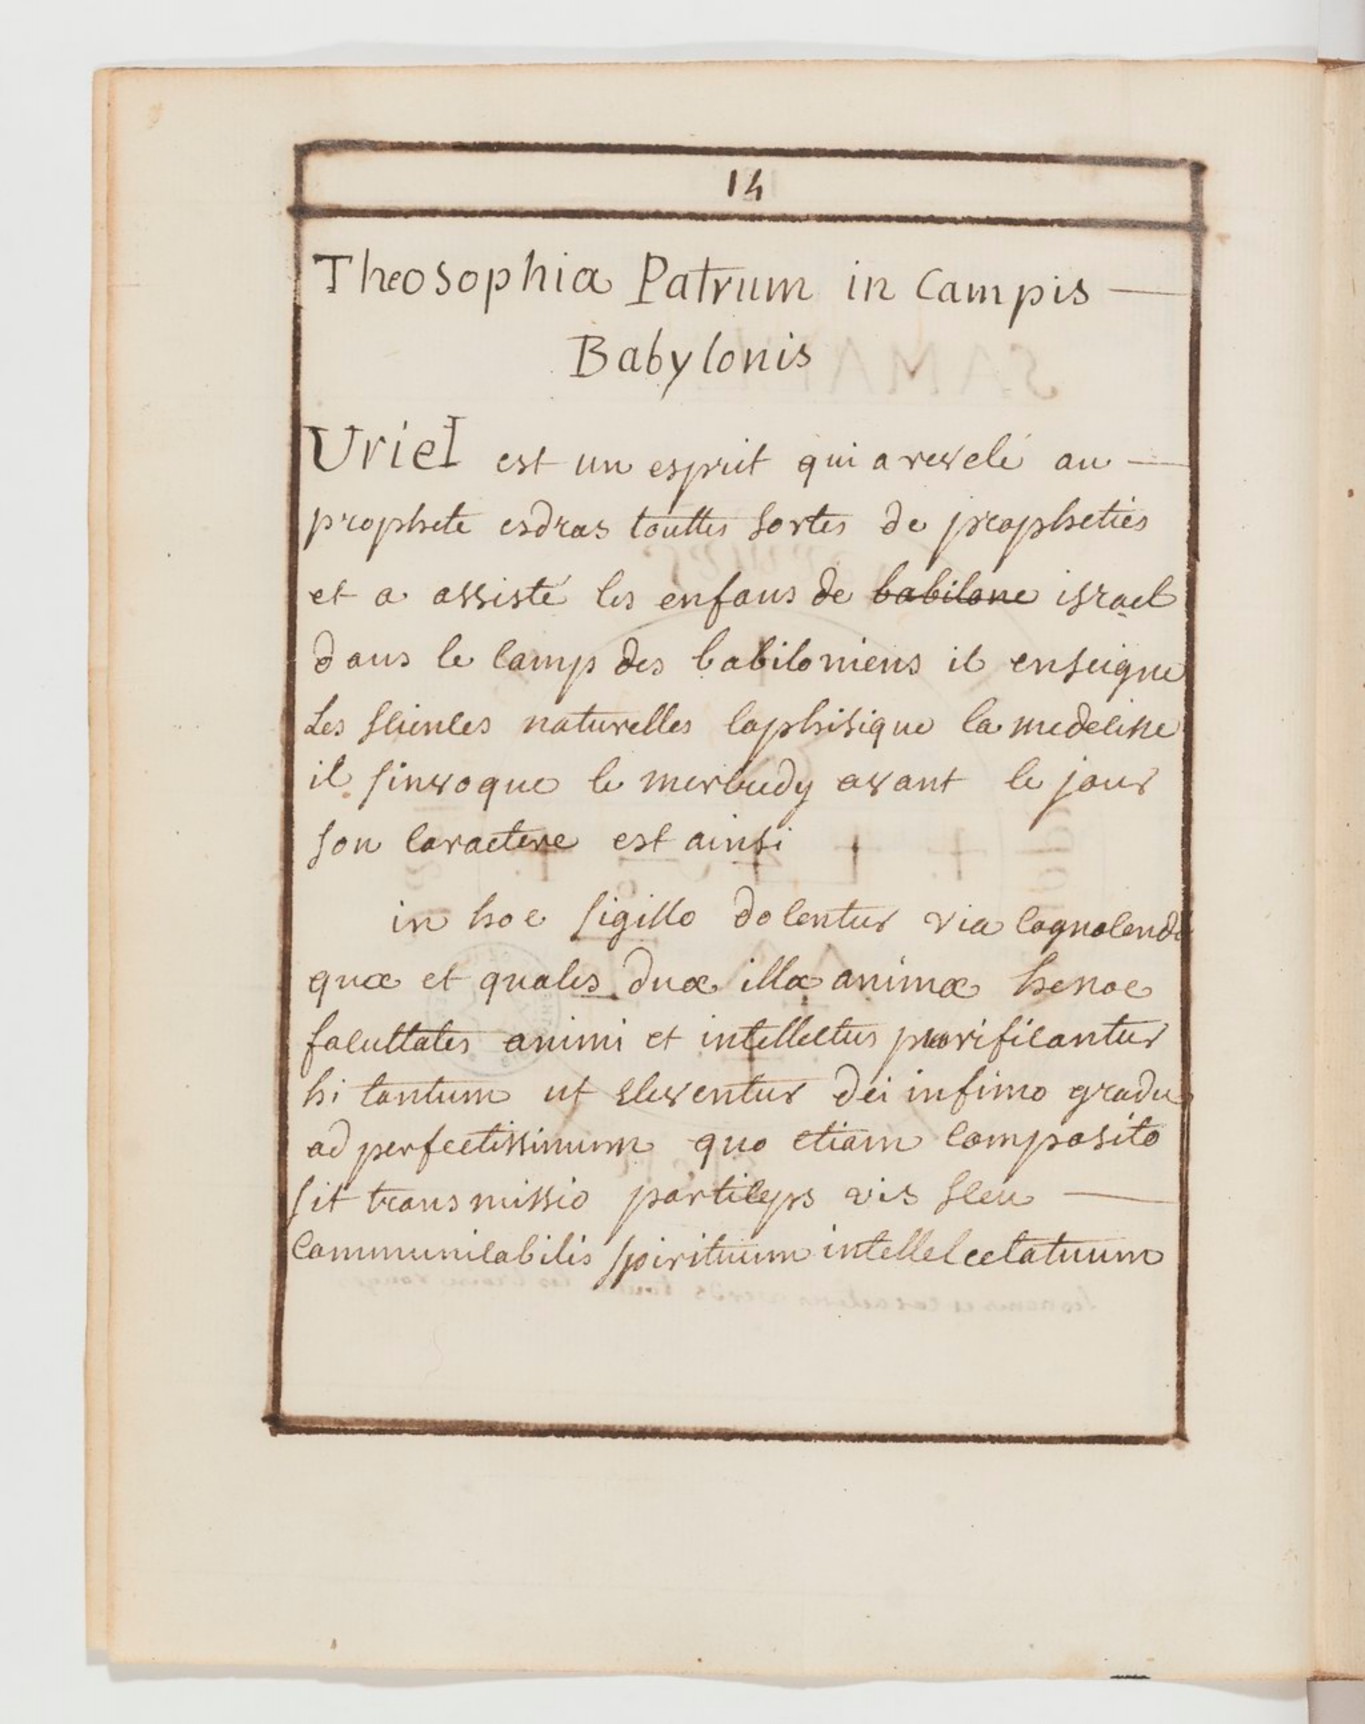 14
Theosophia Patrum in Campis —
Babylonis
Uriel est un esprit qui a revelé au —
prophete esdras touttes sortes de propheties
et a assisté les enfans de babilone israel
dans le camp des babiloniens il enseigne
Les sciences naturelles laphisique la medecine
il sinvoque le mercredy avant le jour
son caractere est ainsi
in hoc sigillo docentur via cognocendi
quæ et quales duæ illæ animæ henoc
facultates animi et intellectus purificantur
hi tantum ut eleventur dei infimo gradu
ad perfectissimum quo etiam composito
sit transmissio particeps vis seu —
communicabilis spirituum intellelcetatuum